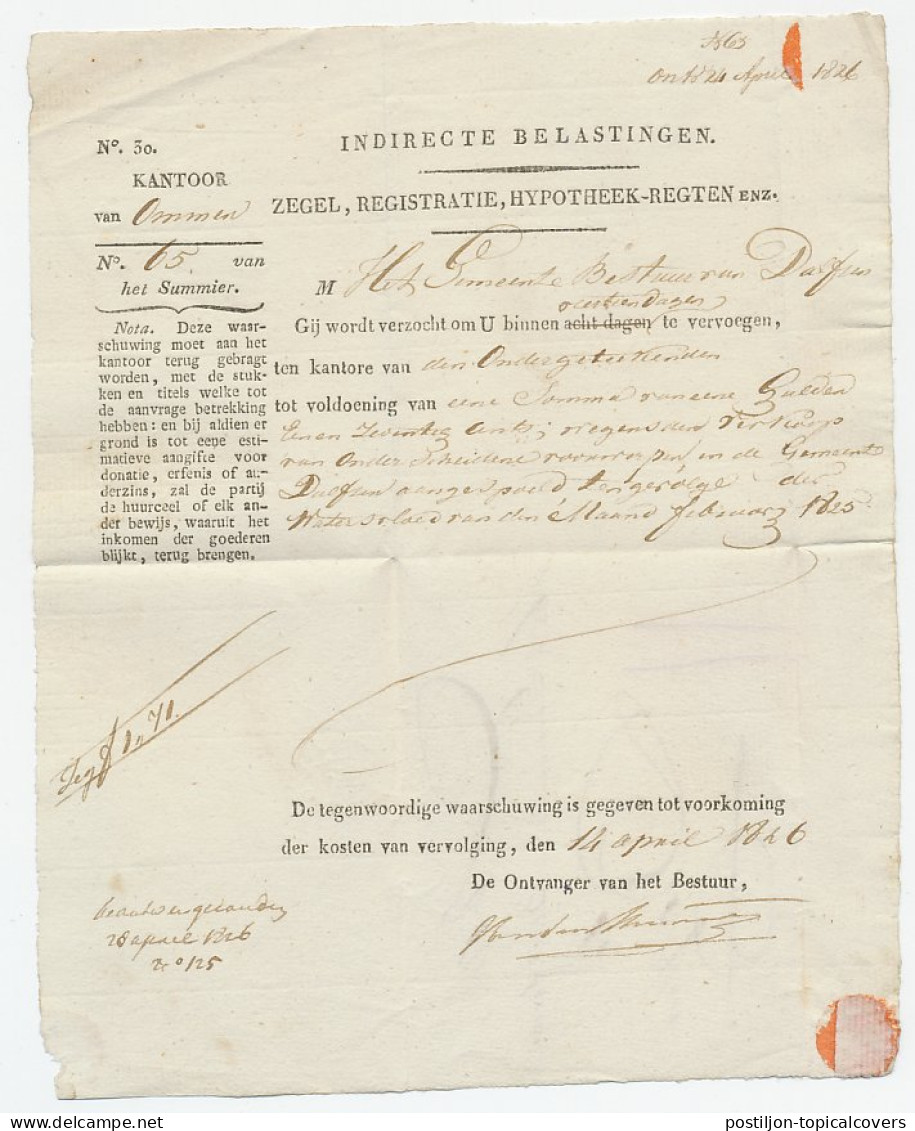 ont 24 April 1826
N°. 30.
KANTOOR
van Ommen
N°. 65. van
het Summier.
Nota. Deze waar-
schuwing moet aan het
kantoor terug gebragt
worden, met de stuk-
ken en titels welke tot
de aanvrage betrekking
hebben: en bij aldien er
grond is tot eene esti-
matieve aangifte voor
donatie, erfenis of an-
derzins, zal de partij
de huurceel of elk an-
der bewijs, waaruit het
inkomen der goederen
blijkt, terug brengen.
INDIRECTE BELASTINGEN.
ZEGEL, REGISTRATIE, HYPOTHEEK-REGTEN ENZ.
M Het Gemeente Bestuur van Dalfsen
veertien dagen
Gij wordt verzocht om U binnen acht dagen te vervoegen,
ten kantore van den Ondergetekenden
tot voldoening van eene Somma van eene Gulden
Eenen Zeventig Cents; wegens den Verkoop
van Onderscheidene voorwerpen in de Gemeente
Dalfsen aangespoeld tengevolge der
Watersvloed van den Maand february 1825
Zegge f 1,,71.
De tegenwoordige waarschuwing is gegeven tot voorkoming
der kosten van vervolging, den 14 april 1826
De Ontvanger van het Bestuur,
28 april 1826
N° 125
postiljon-topicalcovers